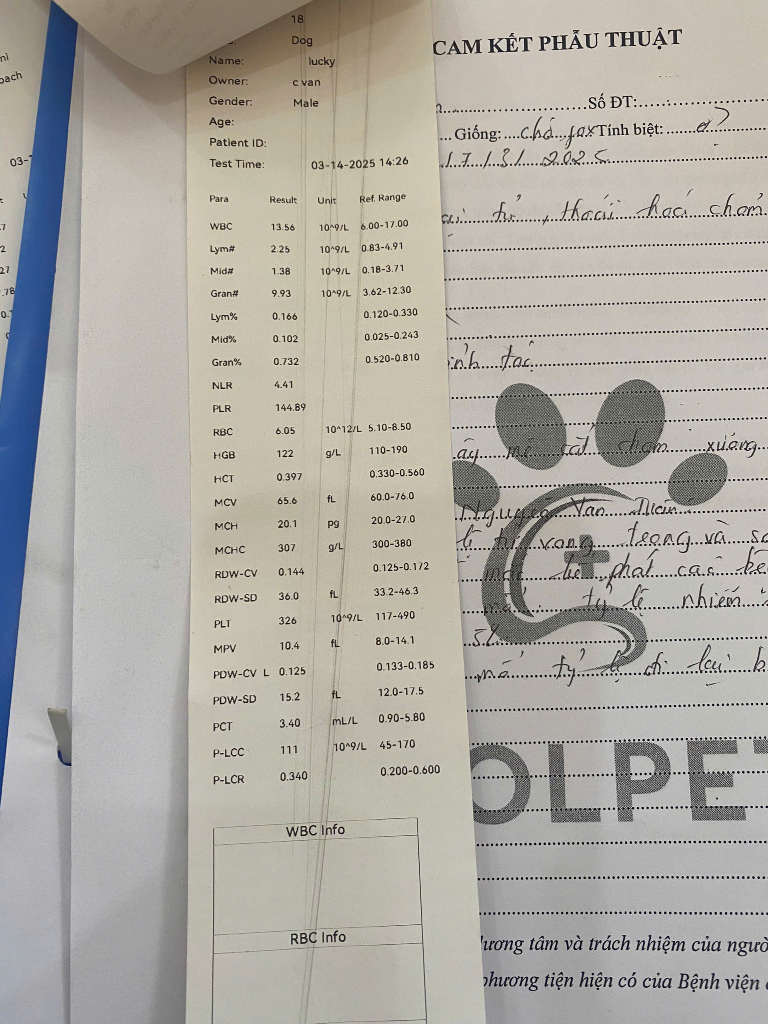 18
Dog
Name: lucky
Owner: c van
Gender: Male
Age:
Patient ID:
Test Time: 03-14-2025 14:26
Para Result Unit Ref. Range
WBC 13.56 10^9/L 6.00-17.00
Lym# 2.25 10^9/L 0.83-4.91
Mid# 1.38 10^9/L 0.18-3.71
Gran# 9.93 10^9/L 3.62-12.30
Lym% 0.166 0.120-0.330
Mid% 0.102 0.025-0.243
Gran% 0.732 0.520-0.810
NLR 4.41
PLR 144.89
RBC 6.05 10^12/L 5.10-8.50
HGB 122 g/L 110-190
HCT 0.397 0.330-0.560
MCV 65.6 fL 60.0-76.0
MCH 20.1 pg 20.0-27.0
MCHC 307 g/L 300-380
RDW-CV 0.144 0.125-0.172
RDW-SD 36.0 fL 33.2-46.3
PLT 326 10^9/L 117-490
MPV 10.4 fL 8.0-14.1
PDW-CV L 0.125 0.133-0.185
PDW-SD 15.2 fL 12.0-17.5
PCT 3.40 mL/L 0.90-5.80
P-LCC 111 10^9/L 45-170
P-LCR 0.340 0.200-0.600
WBC Info
RBC Info
CAM KẾT PHẪU THUẬT
Số ĐT:
Giống: chó fox Tính biệt: ♂
17/3/2025
thoái hoá chỏm
cắt chỏm xương
Nguyễn Văn
vong trong và
phát các
tỷ lệ nhiễm
5%
tỷ lệ đi lại
OLPE
lương tâm và trách nhiệm của
phương tiện hiện có của Bệnh viện